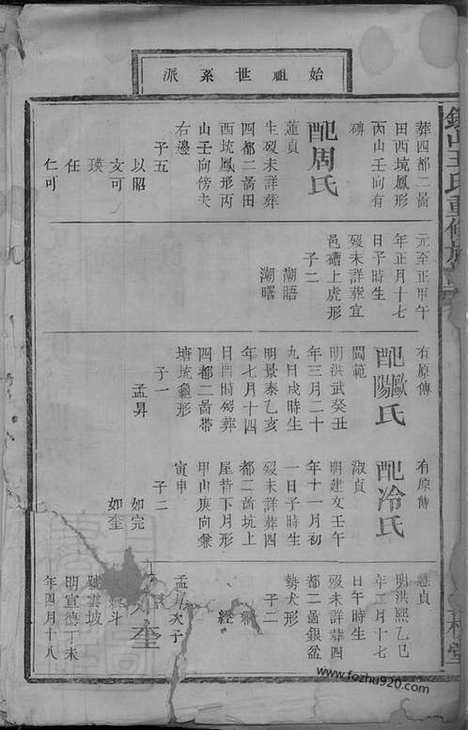 始祖世系派
葬四都二啚
田西坑鳳形
丙山壬向有
碑
配周氏
蓮貞
生歿未詳葬
四都二啚田
西坑鳳形丙
山壬向傍夫
右邊
子五
以昭
文可
瑛
任
仁可
元至正甲午
年正月十七
日子時生
歿未詳葬宜
邑礌上虎形
子二
潮語
潮曙
有原傳
配歐陽氏
閫範
明洪武癸丑
年三月二十
九日戌時生
明景泰乙亥
年七月十四
日酉時歿葬
四都二啚帶
塘坑龜形
子一
孟昇
有原傳
配冷氏
淑貞
明建文壬午
年十一月初
一日子時生
歿未詳葬四
都二啚坑上
屋背下月形
甲山庚向兼
寅申
子二
如完
如奎
慈貞
明洪熙乙巳
年二月十七
日午時生
歿未詳葬四
都二啚銀盆
勢犬形
子二
經
孟昇次子
奎
斗
雲坡
明宣德丁未
年四月十八
王氏重修族
堂
www.fozhu920.com